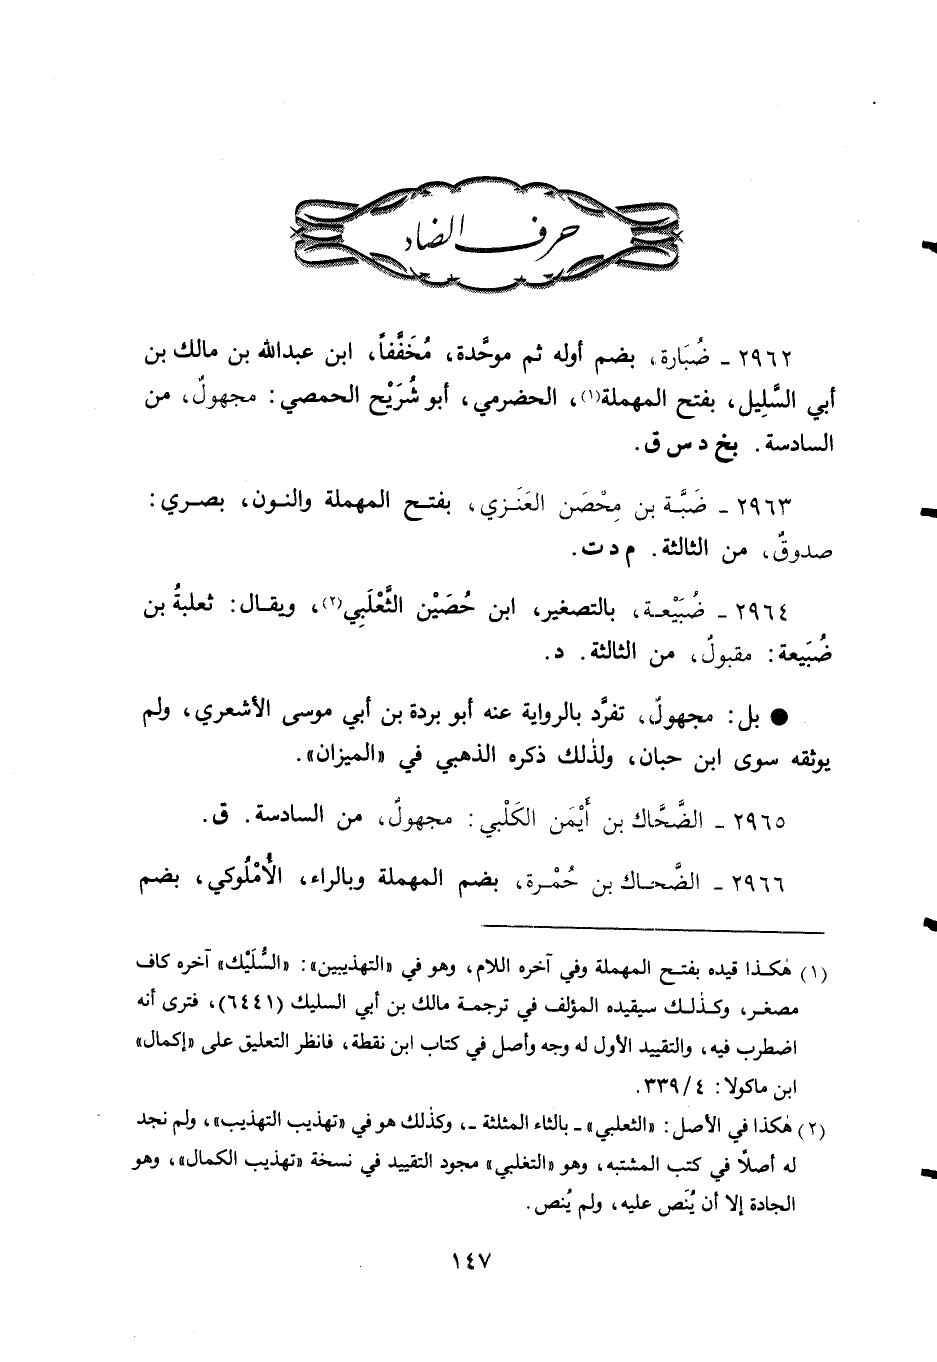 حرف الضاد
٢٩٦٢ ـ ضُبَارة، بضم أوله ثم موحَّدة، مُخَفَّفاً، ابن عبدالله بن مالك بن
أبي السَّلِيل، بفتح المهملة(١)، الحضرمي، أبو شُرَيْح الحمصي: مجهولٌ، من
السادسة. بخ د س ق.
٢٩٦٣ ـ ضَبَّة بن مِحْصَن العَنَزي، بفتح المهملة والنون، بصري:
صدوقٌ، من الثالثة. م د ت.
٢٩٦٤ ـ ضُبَيْعة، بالتصغير، ابن حُصَيْن الثَّعْلَبي(٢)، ويقال: ثعلبةُ بن
ضُبَيعة: مقبولٌ، من الثالثة. د.
● بل: مجهولٌ، تفرَّد بالرواية عنه أبو بردة بن أبي موسى الأشعري، ولم
يوثقه سوى ابن حبان، ولذٰلك ذكره الذهبي في «الميزان».
٢٩٦٥ ـ الضَّحَّاك بن أَيْمَن الكَلْبي: مجهولٌ، من السادسة. ق.
٢٩٦٦ ـ الضَّحاك بن حُمْرة، بضم المهملة وبالراء، الأُمْلُوكي، بضم
(١) هٰكذا قيده بفتح المهملة وفي آخره اللام، وهو في «التهذيبين»: «السُّلَيْك» آخره كاف
مصغر، وكذٰلك سيقيده المؤلف في ترجمة مالك بن أبي السليك (٦٤٤١)، فترى أنه
اضطرب فيه، والتقييد الأول له وجه وأصل في كتاب ابن نقطة، فانظر التعليق على «إكمال»
ابن ماكولا: ٤/ ٣٣٩.
(٢) هٰكذا في الأصل: «الثعلبي» ـ بالثاء المثلثة ـ، وكذٰلك هو في «تهذيب التهذيب»، ولم نجد
له أصلاً في كتب المشتبه، وهو «التغلبي» مجود التقييد في نسخة «تهذيب الكمال»، وهو
الجادة إلا أن يُنَص عليه، ولم يُنص.
١٤٧